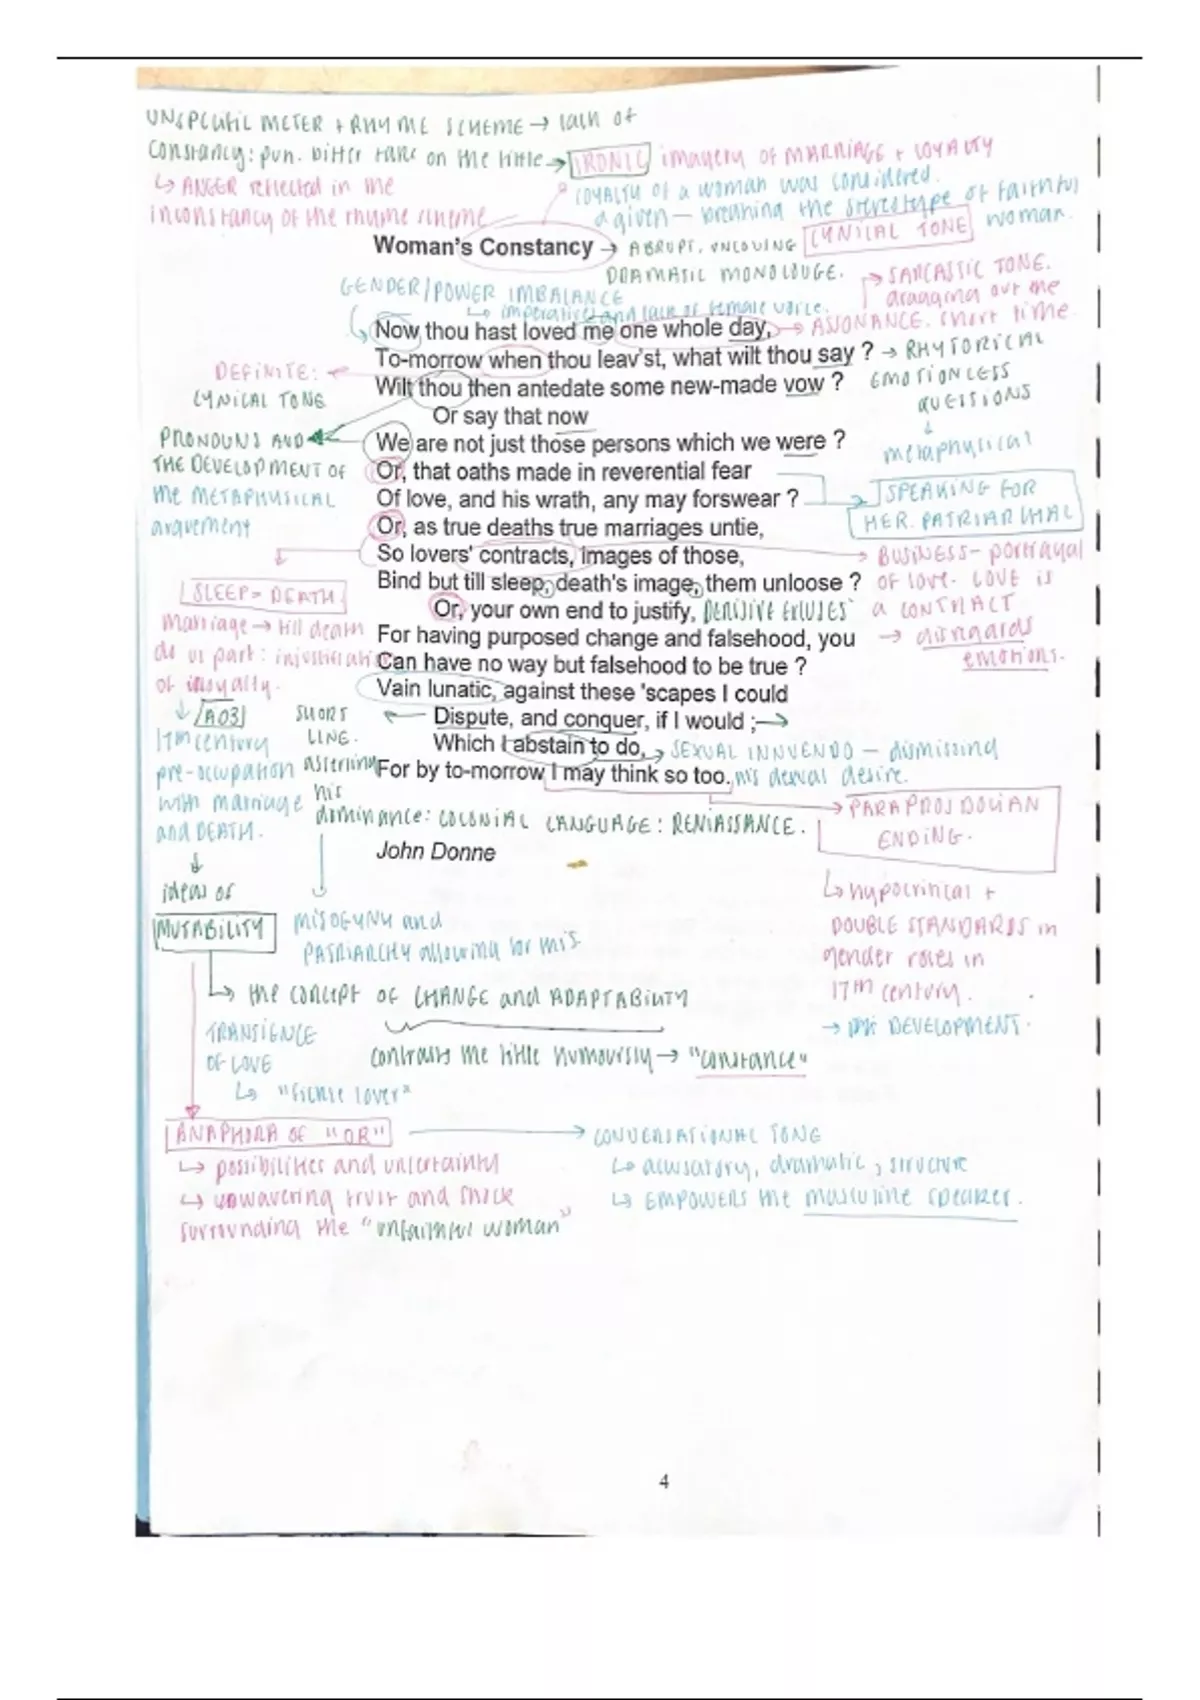 UNSPECIFIC METER + RHYME SCHEME → lack of
constancy: pun. bitter take on the title → IRONIC imagery of MARRIAGE + LOYALTY
↳ ANGER reflected in the
inconstancy of the rhyme scheme
LOYALTY of a woman was considered
a given – breaking the stereotype of faithful
woman.
Woman's Constancy → ABRUPT, UNLOVING CYNICAL TONE
DRAMATIC MONOLOUGE.
GENDER/POWER IMBALANCE
↳ imperatives and lack of female voice.
→ SARCASTIC TONE.
dragging out the
Now thou hast loved me one whole day, → ASSONANCE. short time.
To-morrow when thou leav'st, what wilt thou say ? → RHYTORICAL
Wilt thou then antedate some new-made vow ? EMOTIONLESS
QUESTIONS
↓
metaphysical
DEFINITE:
CYNICAL TONE
Or say that now
PRONOUNS AND
THE DEVELOPMENT OF
the METAPHYSICAL
argument
We are not just those persons which we were ?
Or, that oaths made in reverential fear
Of love, and his wrath, any may forswear ?
SPEAKING FOR
HER. PATRIARCHAL
Or, as true deaths true marriages untie,
So lovers' contracts, images of those,
Bind but till sleep, death's image, them unloose ?
→ BUSINESS- portrayal
of love. LOVE is
a CONTRACT
→ disregards
emotions.
Or, your own end to justify, DERISIVE EXCUSES
For having purposed change and falsehood, you
Can have no way but falsehood to be true ?
SLEEP = DEATH.
marriage → till death
do us part:
of
Vain lunatic, against these 'scapes I could
Dispute, and conquer, if I would ;
Which I abstain to do, → SEXUAL INNUENDO – dismissing
For by to-morrow I may think so too. his sexual desire.
↓ AO3
17th century
pre-occupation
with marriage
and DEATH.
↓
ideas of
MUTABILITY
SHORT
LINE.
asserting
his
dominance: COLONIAL LANGUAGE: RENIASSANCE.
John Donne
PARAPROSDOLIAN
ENDING.
↳ hypocritical +
DOUBLE STANDARDS in
gender roles in
17th century.
→ DEVELOPMENT.
MISOGYNY and
PATRIARCHY allowing for this
↳ the CONCEPT OF CHANGE and ADAPTABILITY
TRANSIENCE
OF LOVE
↳ "fickle lover"
contrasts the title humorously → "constance"
ANAPHORA OF "OR" → CONVERSATIONAL TONE
↳ possibilities and uncertainty
↳ unwavering trust and shock
surrounding the "unfaithful woman"
↳ accusatory, dramatic, structure
↳ EMPOWERS the masculine speaker.
4